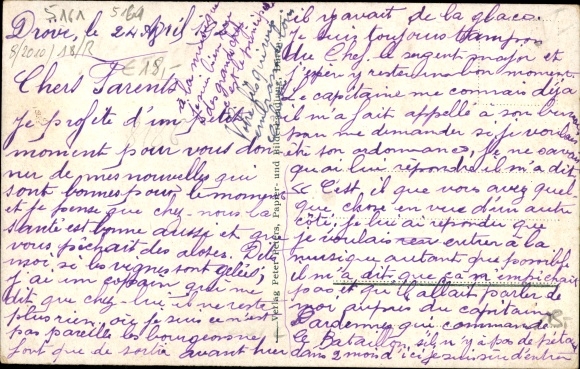 5161 5161
Drove, le 24 Avril 19
8/2010/18/R
€ 18,-
Chers Parents
Je profite d'un petit
moment pour vous don
ner de mes nouvelles qui
sont bonnes pour le moment
et je pense que chez-nous la
santé est bonne aussi et que
vous pêchait des aloses. Dites
moi si les vignes sont gelées,
j'ai un copain qui me
dit que chez-lui il ne reste
plus rien, où je suis ce n'est
pas pareilles les bourgeons ne
font que de sortir avant hier
il y avait de la glace.
Je suis toujours tampon
du Chef, le sergent major et
j'espère y rester un bon moment
Le capitaine me connais déjà
il m'a fait appelé à son bureau
pour me demander si je voulais
être son ordonnance, je ne savais
quoi lui répondre il m'a dit
"C'est, il que vous avez quel-
que chose en vue d'un autre
côté, je lui ai répondu que
je voulais entrer à la
musique autant que possible
il m'a dit que ça n'empêchait
pas et qu'il allait parler de
moi auprès du capitaine
Dardennes qui commande
le Bataillon, s'il n'y a pas de
dans 2 mois d'ici je suis sûr d'entrer
à la musique
Votre fils qui vous
embrasse bien fort
Verlag Peter Peters, Papier- und